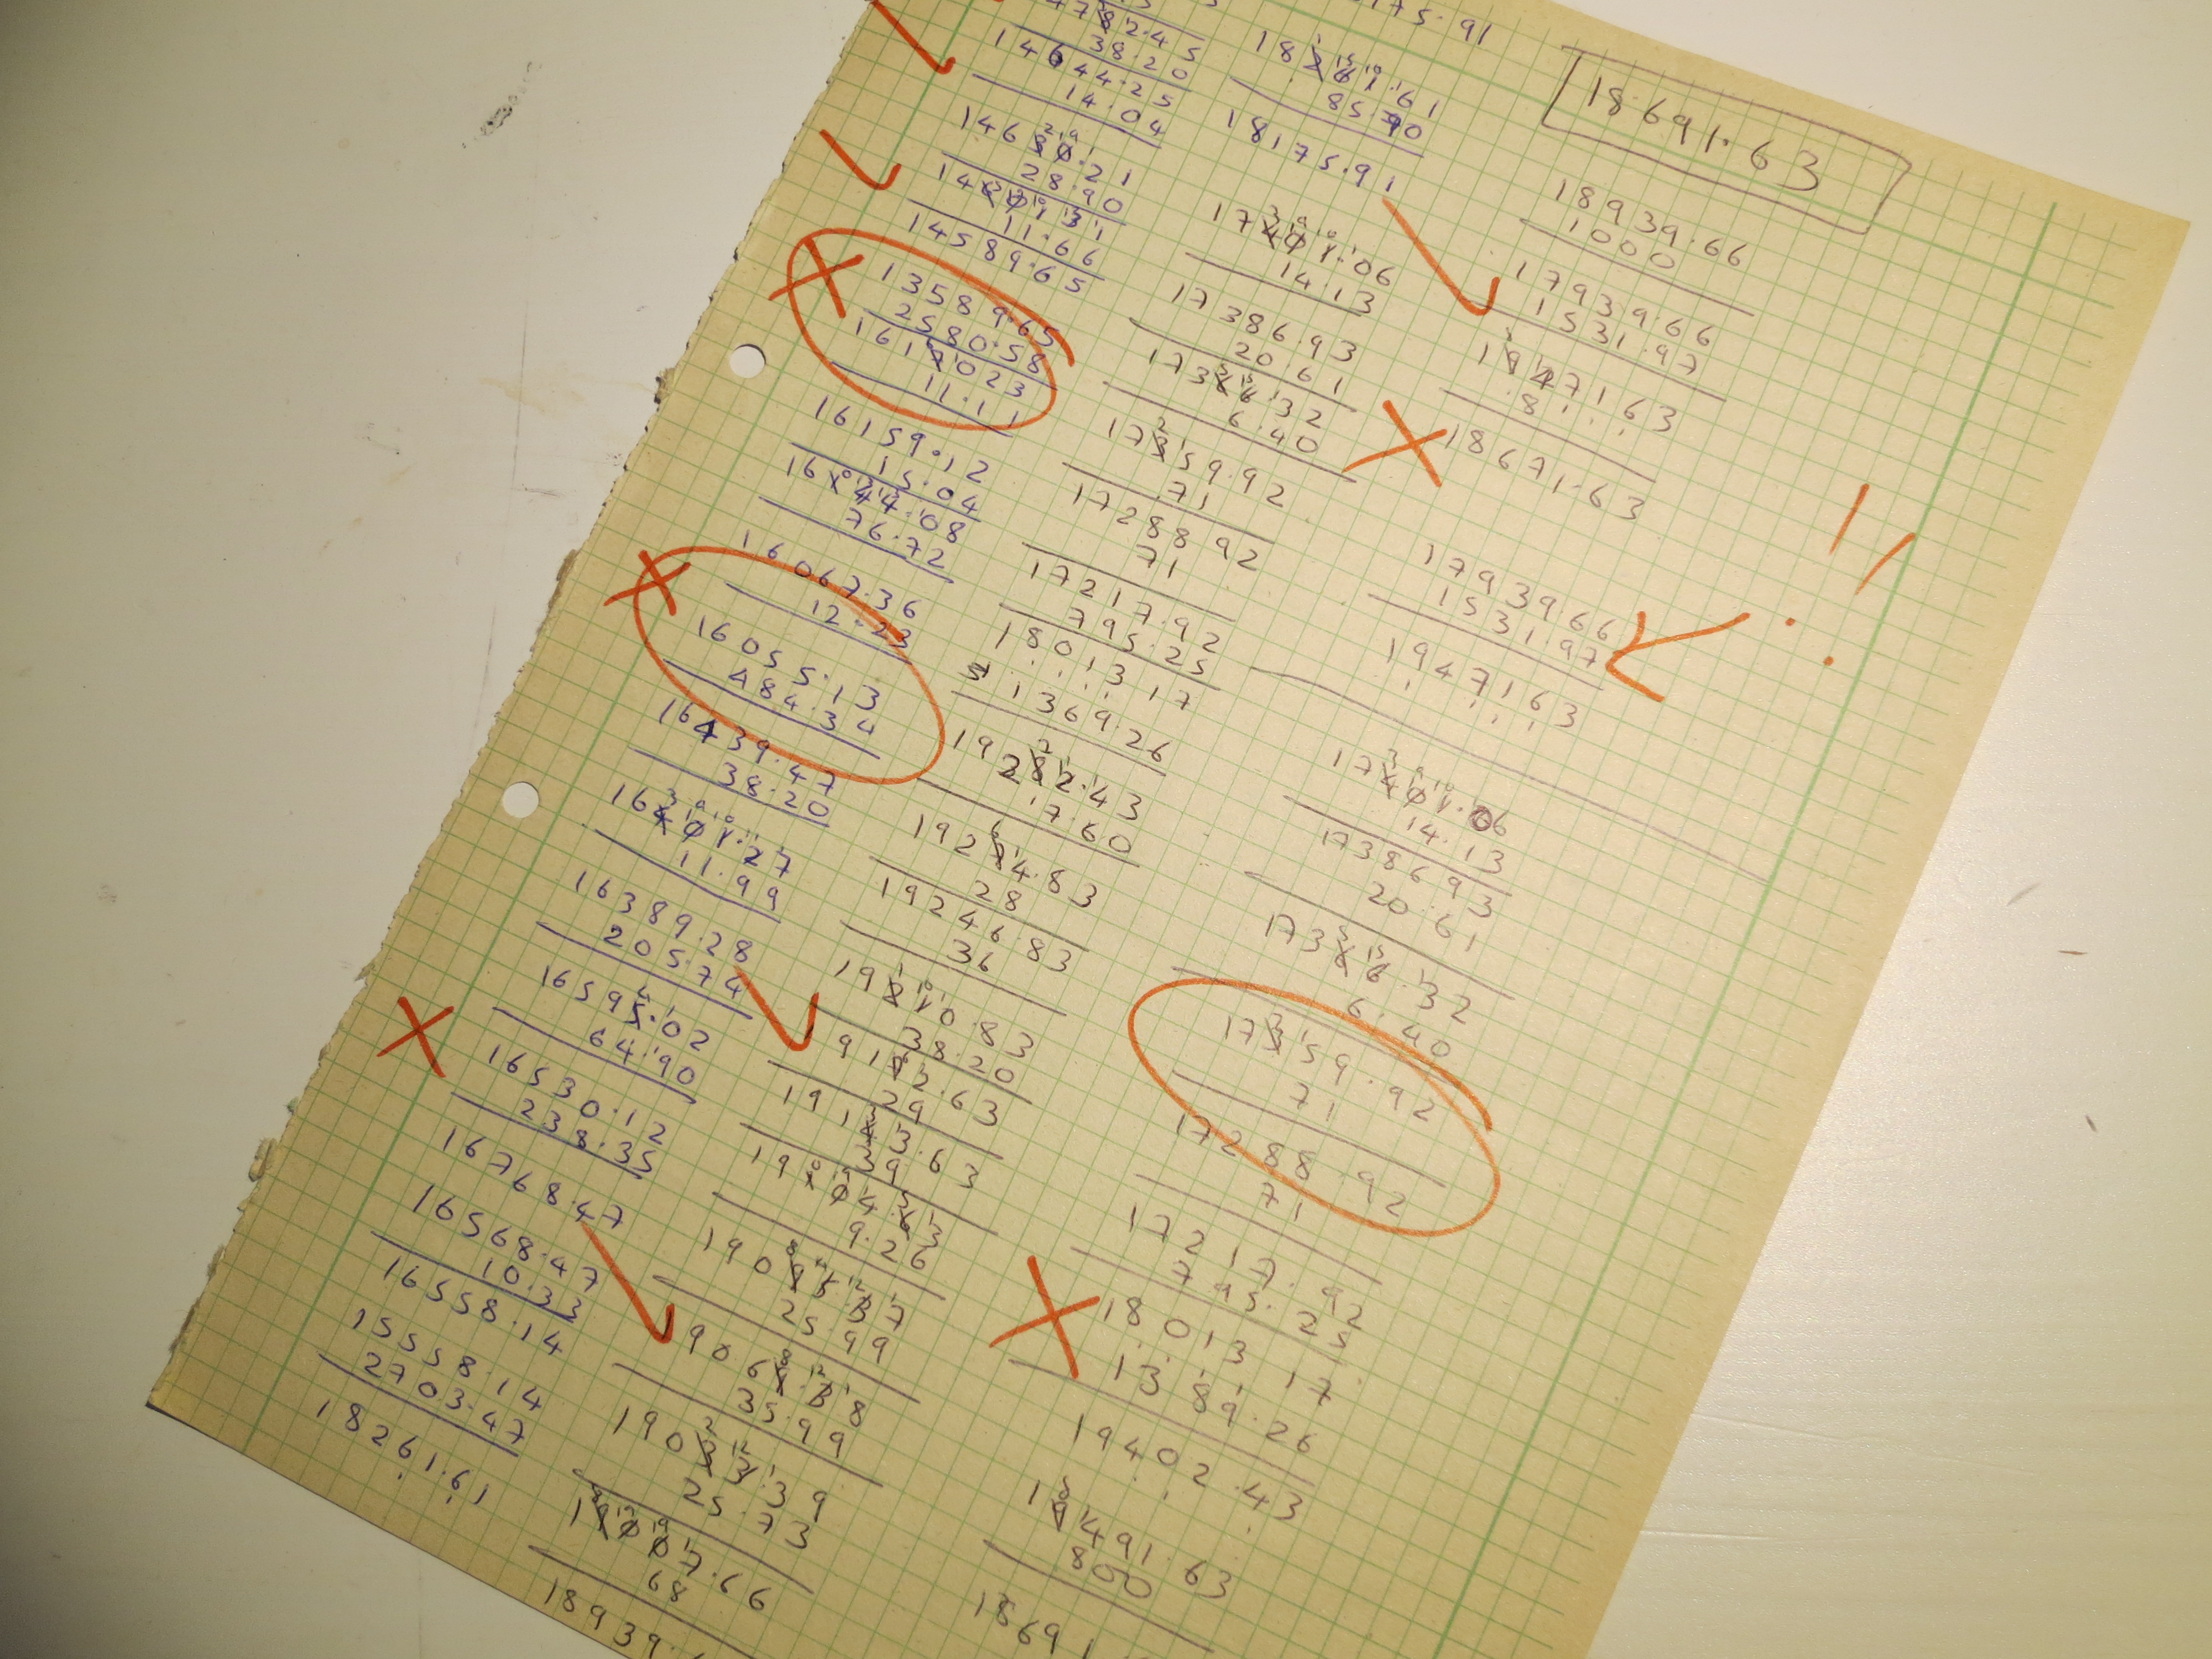 38.20
14644.25
14.04
14630.21
28.90
14601.31
11.66
14589.65
13589.65
2580.58
1617023
11.11
16159.12
15.04
16144.08
76.72
16067.36
12.23
16055.13
484.34
16439.47
38.20
16401.27
11.99
16389.28
205.74
16595.02
64.90
16530.12
238.35
16768.47
16568.47
10.33
16558.14
15558.14
2703.47
18261.61
175.91
18261.61
85.70
18175.91
17401.06
14.13
17386.93
20.61
17366.32
6.40
17359.92
71
17288 92
71
17217.92
795.25
18013 17
1369.26
19282.43
17.60
19274.83
28
19246.83
36
19210.83
38.20
29
191
3.63
39
19104.63
9.26
19095.37
25.99
35.99
19033.39
25.73
19007.66
68
18939.
18.691.63
18939.66
1000
17939.66
1531.97
1947163
8
18671.63
17939.66
1531.97
1947163
17401.06
14.13
1738693
20.61
17366.32
6.40
17359.92
71
17288.92
71
17217.92
795.25
18013 17
1389.26
19402.43
19491.63
800
18691